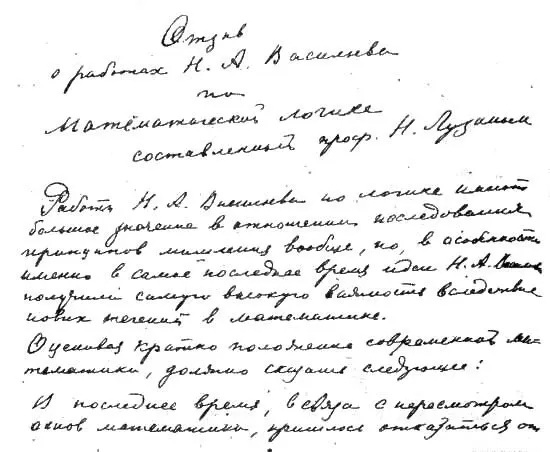 Отзыв
о работах Н. А. Васильева
по
Математической логике
составленный проф. Н. Лузиным
Работы Н. А. Васильева по логике имеют
большое значение в отношении исследования
принципов мышления вообще, но, в особенности
именно в самое последнее время идеи Н. А. Васильева
получили самую высокую важность вследствие
новых течений в математике.
Оценивая кратко положение современной ма-
тематики, должно сказать следующее:
В последнее время, в связи с пересмотром
основ математики, пришлось отказаться от